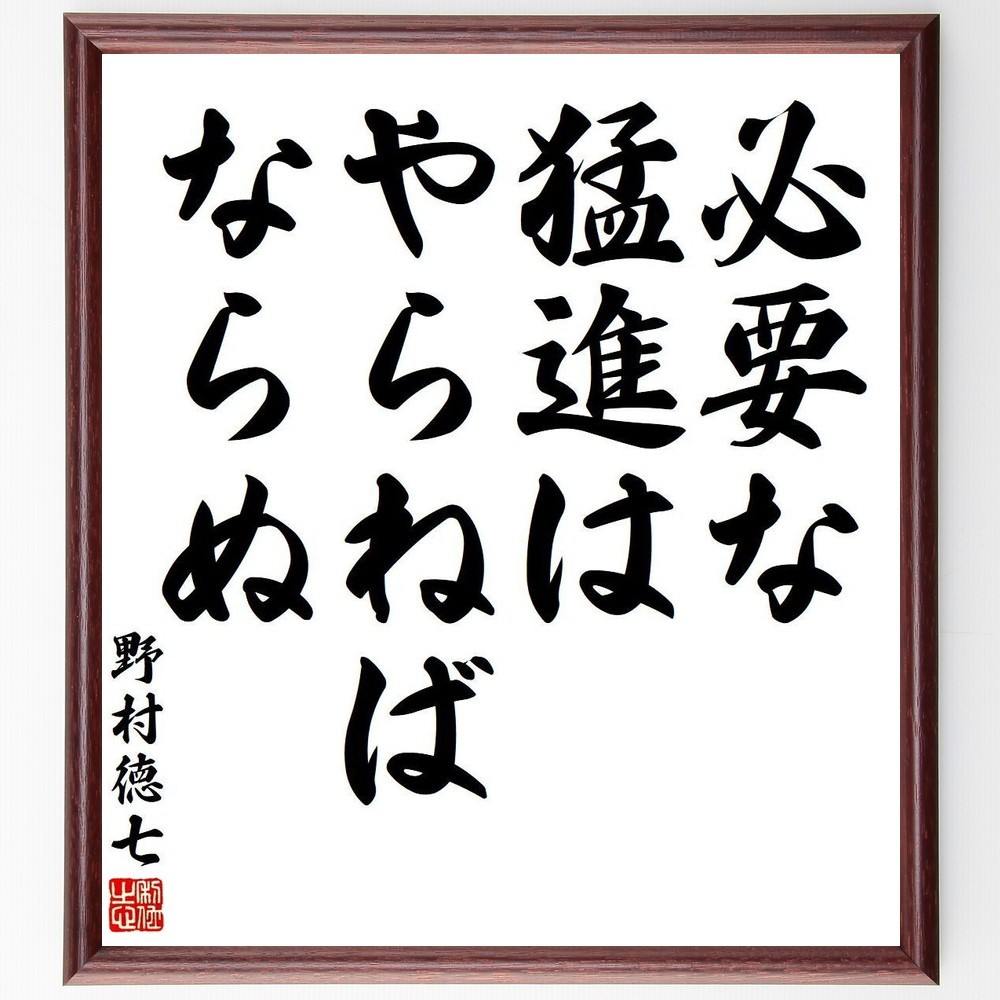 必要な
猛進は
やらねば
ならぬ
野村徳七